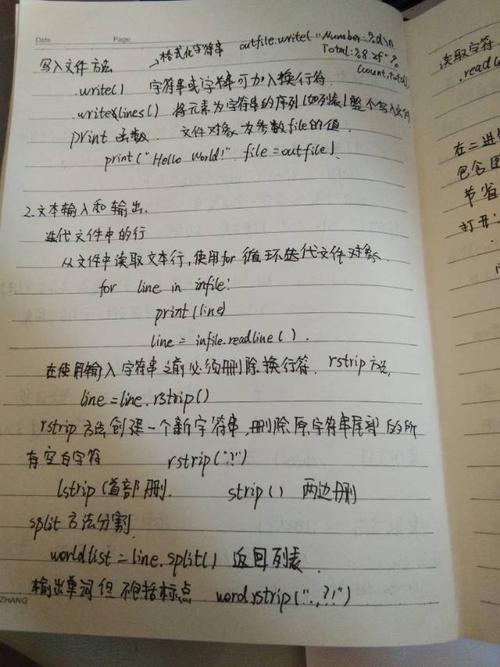 Date Page
写入文件方法 →格式化字符串 outfile.write("Number:%d\n
Total:%8.2f"%
(count,total)
.write() 字符串或字符串可加入换行符
.writelines() 将元素为字符串的序列(如列表)整个写入文件
print 函数. 文件对象为参数file的值.
print("Hello World!" file=outfile).
2.文本输入和输出.
迭代文件中的行
从文件中读取文本行,使用for循环迭代文件对象.
for line in infile:
print(line)
line = infile.readline().
在使用输入字符串之前必须删除换行符. rstrip方法,
line=line.rstrip()
rstrip方法创建一个新字符串,删除原字符串尾部的所
有空白字符 rstrip(".?")
lstrip(首部删. strip() 两边删
split方法分割
wordlist=line.split() 返回列表
输出单词但不包括标点 word.rstrip(".,?!")
ZHANG
读取字符
.readl
在二进
包含图
节省
打开: